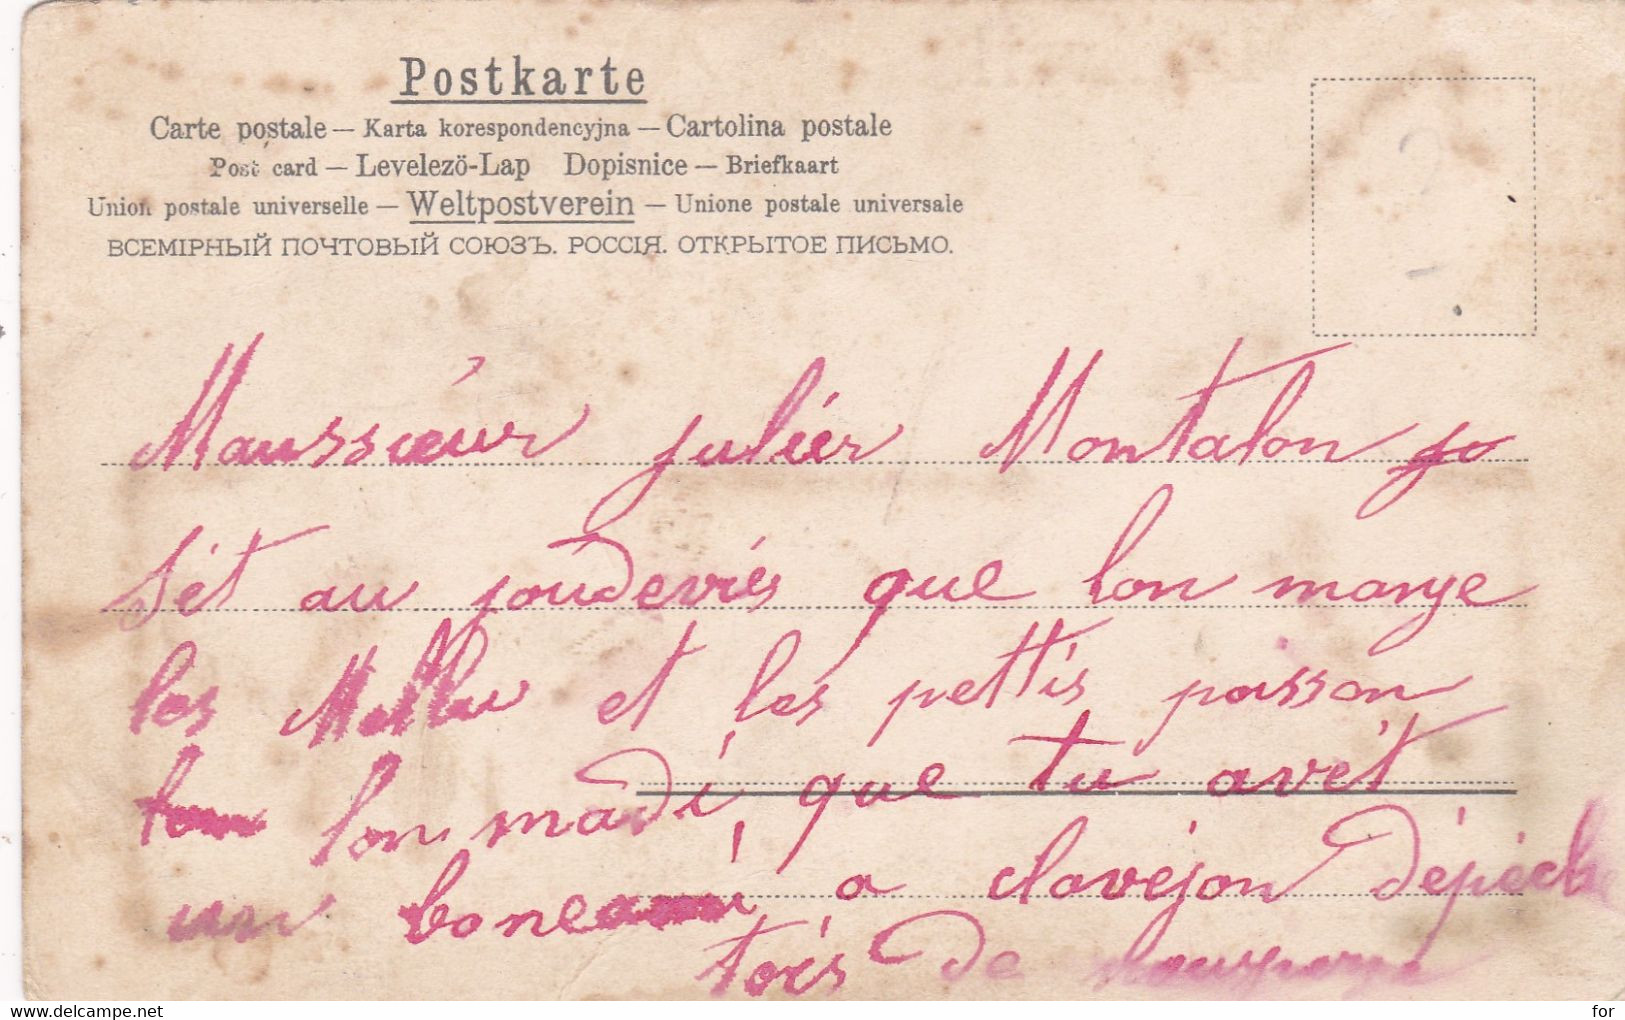 Postkarte
Carte postale — Karta korespondencyjna — Cartolina postale
Post card — Levelezö-Lap Dopisnice — Briefkaart
Union postale universelle — Weltpostverein — Unione postale universale
ВСЕМІРНЫЙ ПОЧТОВЫЙ СОЮЗЪ. РОССІЯ. ОТКРЫТОЕ ПИСЬМО.
Maussœur juliér Montalon jo
sét au joudeviés que lon mange
les et les pettis poisson
lon madi que tu avét
un bone a clavéjon Dépéche
tois de
www.delcampe.net
for